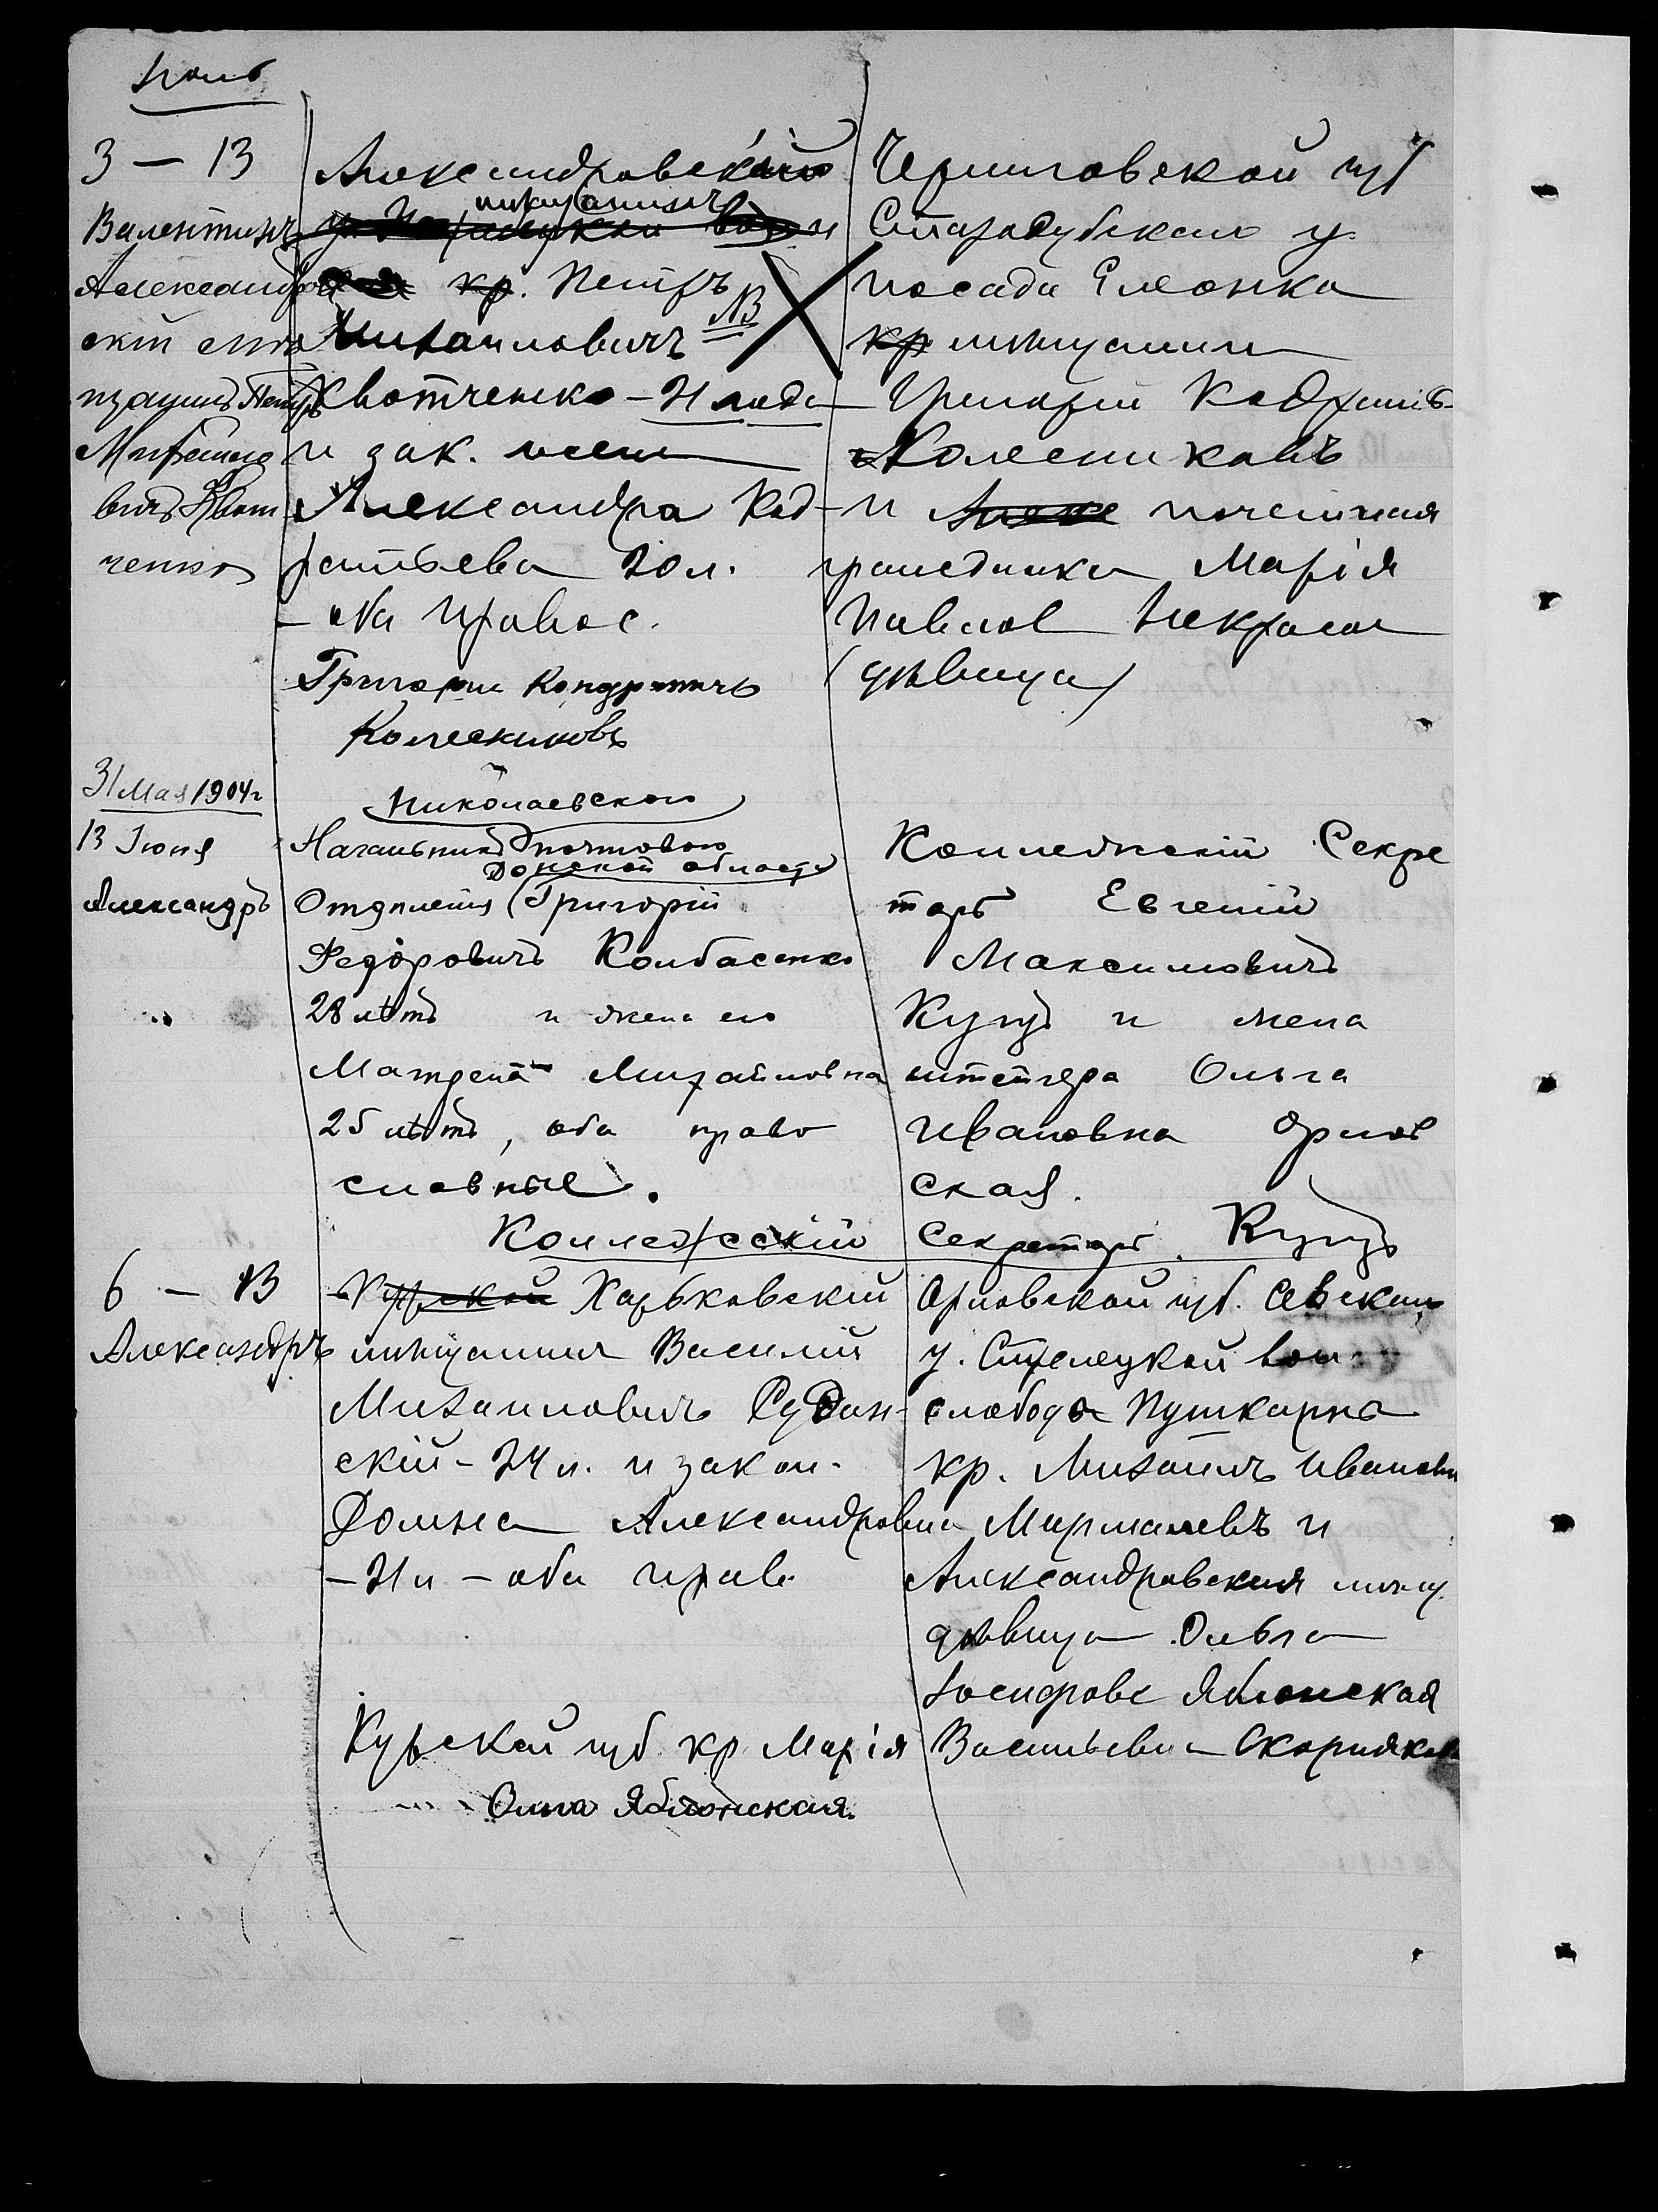 Іюнь
3 — 13
Валентинъ
Александров
скій мѣ
щанинъ Петръ
Михайло
вичъ Хвот
ченко
Александровскій
мѣщанинъ
кр. Петръ
Михайловичъ NB
Хвотченко - 21 года
и зак. жена
Александра Код-
ратьева 20 л.
- оба правос.
Григорій Кондратичъ
Колесниковъ
Черниговской губ
Стародубскаго у.
посада Еліонка
кр мѣщанинъ
Григорій Кодратьев-
Колесниковъ
и Алекс почетная
гражданка Марія
Павлов Некрасова
(дѣвица)
31 Мая 1904 г
13 Іюня
Александръ
Николаевскаго
Начальникъ почтоваго
Донской области
Отдѣленія Григорій
Федоровичъ Колбасенко
28 лѣтъ и жена его
Матрена Михайловна
25 лѣтъ, оба право
славные.
Коллежскій Секре
тарь Евгеній
Максимовичъ
Куцъ и жена
штейгера Ольга
Ивановна Орлов
ская.
Коллежскій Секретарь Куцъ
6 — 13
Александръ
Курской Харьковскій
мѣщанинъ Василій
Михаиловичъ Судан-
скій - 24 л. и закон.
Домна Александровна
- 21 л - оба прав.
Орловской губ. Севскаго
у. Стрелецкой вол
слобода Пушкарна
кр. Михаилъ Иванови
Мармалевъ и
Александровская мѣщ.
дѣвица Ольга
Іосифова Яблонская
Курской губ. кр Марія Васильевна Скорняков
Олга Яблонская.